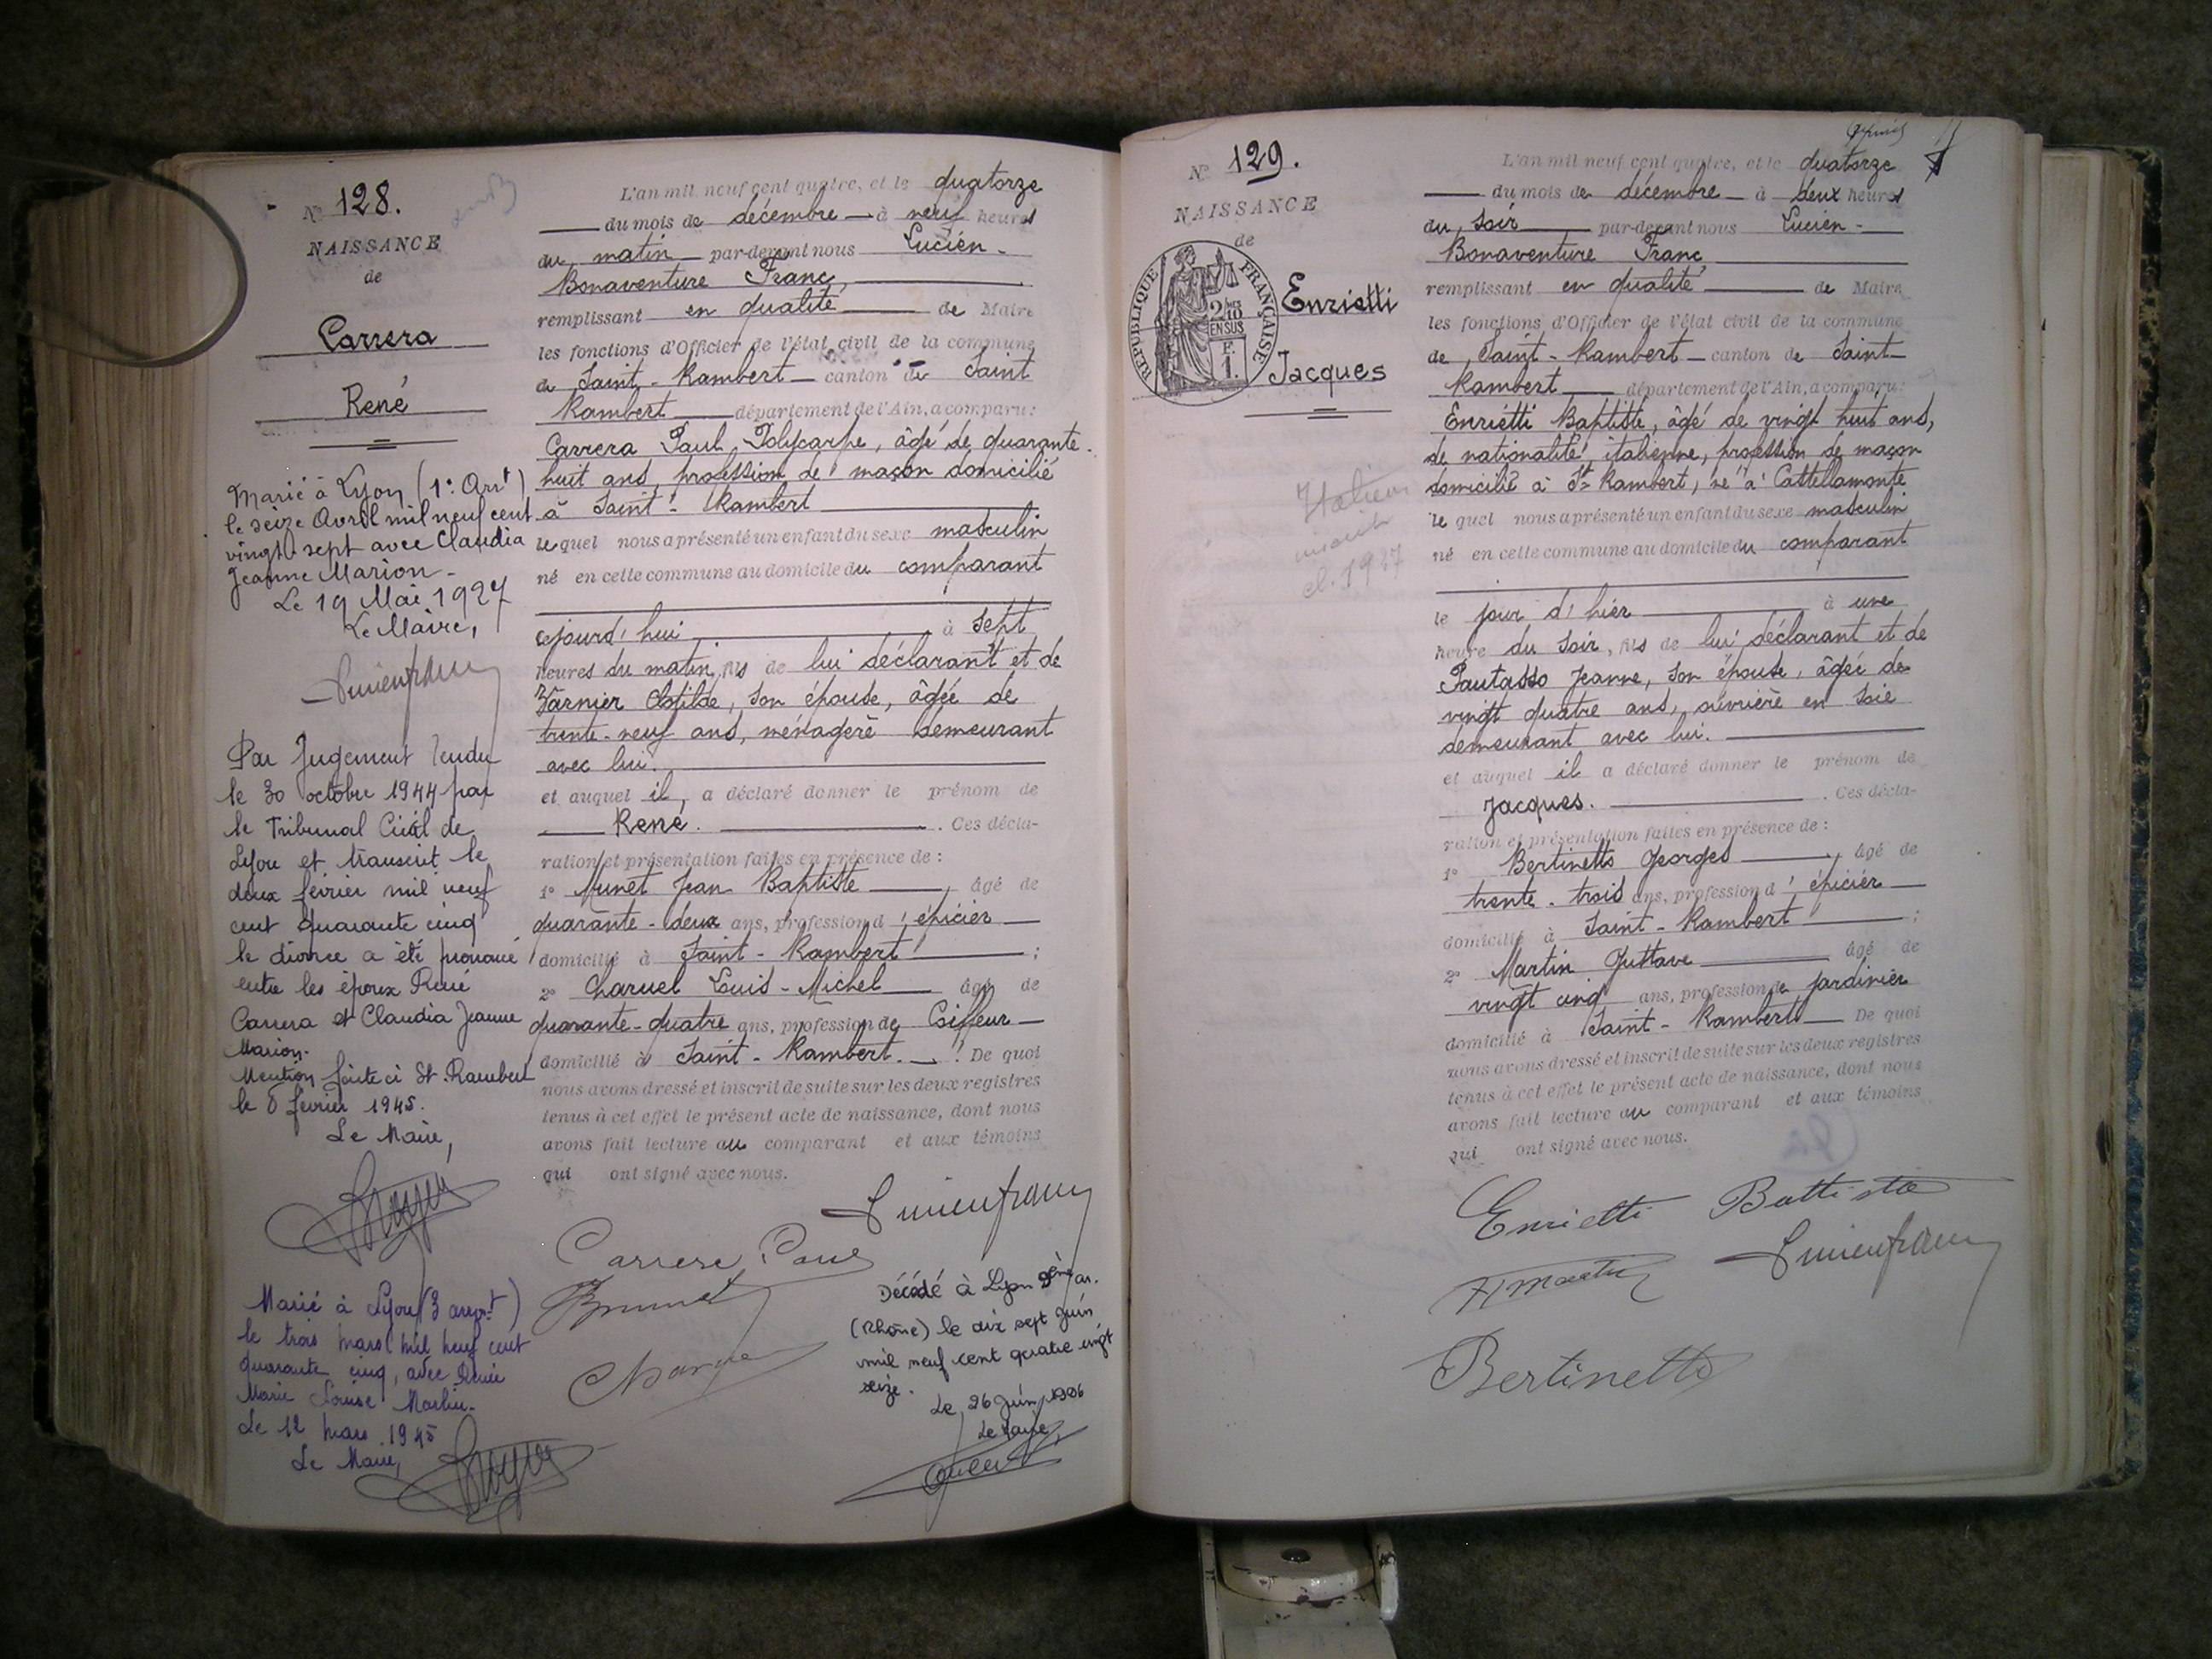 Nº 128.
NAISSANCE
de
Carrera
René
Marié à Lyon (1er Arrt)
le seize Avril mil neuf cent
vingt-sept avec Claudia
Jeanne Marion -
Le 19 Mai 1927
Le Maire,
Lucien franc
Par Jugement rendu
le 30 octobre 1944 par
le Tribunal Civil de
Lyon et transcrit le
deux février mil neuf
cent quarante cinq
le divorce a été prononcé
entre les époux René
Carrera et Claudia Jeanne
Marion.
Mention faite à St. Rambert
le 8 février 1945.
Le Maire,
Marié à Lyon (3 arront)
le trois mars mil neuf cent
quarante cinq, avec
Marie Louise
Le 12 mars 1945
Le Maire,
L'an mil neuf cent quatre, et le quatorze
du mois de décembre à neuf heures
du matin par-devant nous Lucien-
Bonaventure Franc,
remplissant en qualité de Maire
les fonctions d'Officier de l'état civil de la commune
de Saint-Rambert canton de Saint
Rambert département de l'Ain, a comparu:
Carrera Paul Polycarpe, âgé de quarante-
huit ans, profession de maçon domicilié
à Saint-Rambert
lequel nous a présenté un enfant du sexe masculin
né en cette commune au domicile du comparant
cejourd'hui à sept
heures du matin, fils de lui déclarant et de
Varnier Clotilde, son épouse, âgée de
trente-neuf ans, ménagère demeurant
avec lui.
et auquel il a déclaré donner le prénom de
René. . Ces décla-
ration et présentation faites en présence de :
1º Munet Jean Baptiste , âgé de
quarante-deux ans, profession d'épicier
domicilié à Saint-Rambert ;
2º Charvel Louis-Michel âgé de
quarante-quatre ans, profession de Coiffeur
domicilié à Saint-Rambert. De quoi
nous avons dressé et inscrit de suite sur les deux registres
tenus à cet effet le présent acte de naissance, dont nous
avons fait lecture au comparant et aux témoins
qui ont signé avec nous.
Lucien franc
Carrera Paul
Décédé à Lyon ar.
(Rhône) le dix sept juin
mil neuf cent quatre vingt
seize.
Le 26 Juin 1996
Le Maire
Nº 129.
NAISSANCE
de
RÉPUBLIQUE FRANÇAISE
2 MES
10
EN SUS
F.
1.
Enrietti
Jacques
Italien
inscrit
cl. 1927
L'an mil neuf cent quatre, et le quatorze
du mois de décembre à deux heures
du soir par-devant nous Lucien-
Bonaventure Franc
remplissant en qualité de Maire
les fonctions d'Officier de l'état civil de la commune
de Saint-Rambert canton de Saint-
Rambert département de l'Ain, a comparu :
Enrietti Baptiste, âgé de vingt huit ans,
de nationalité italienne, profession de maçon
domicilié à St Rambert, né à Cattellamonte
lequel nous a présenté un enfant du sexe masculin
né en cette commune au domicile du comparant
le jour d'hier à une
heure du soir, fils de lui déclarant et de
Pautasso Jeanne, son épouse, âgée de
vingt quatre ans, ouvrière en soie
demeurant avec lui.
et auquel il a déclaré donner le prénom de
Jacques. . Ces décla-
ration et présentation faites en présence de :
1º Bertinetto Georges , âgé de
trente-trois ans, profession d'épicier
domicilié à Saint-Rambert ;
2º Martin Gustave âgé de
vingt cinq ans, profession de jardinier
domicilié à Saint-Rambert De quoi
nous avons dressé et inscrit de suite sur les deux registres
tenus à cet effet le présent acte de naissance, dont nous
avons fait lecture au comparant et aux témoins
qui ont signé avec nous.
Enrietti Battista
Lucien franc
Martin
Bertinetto